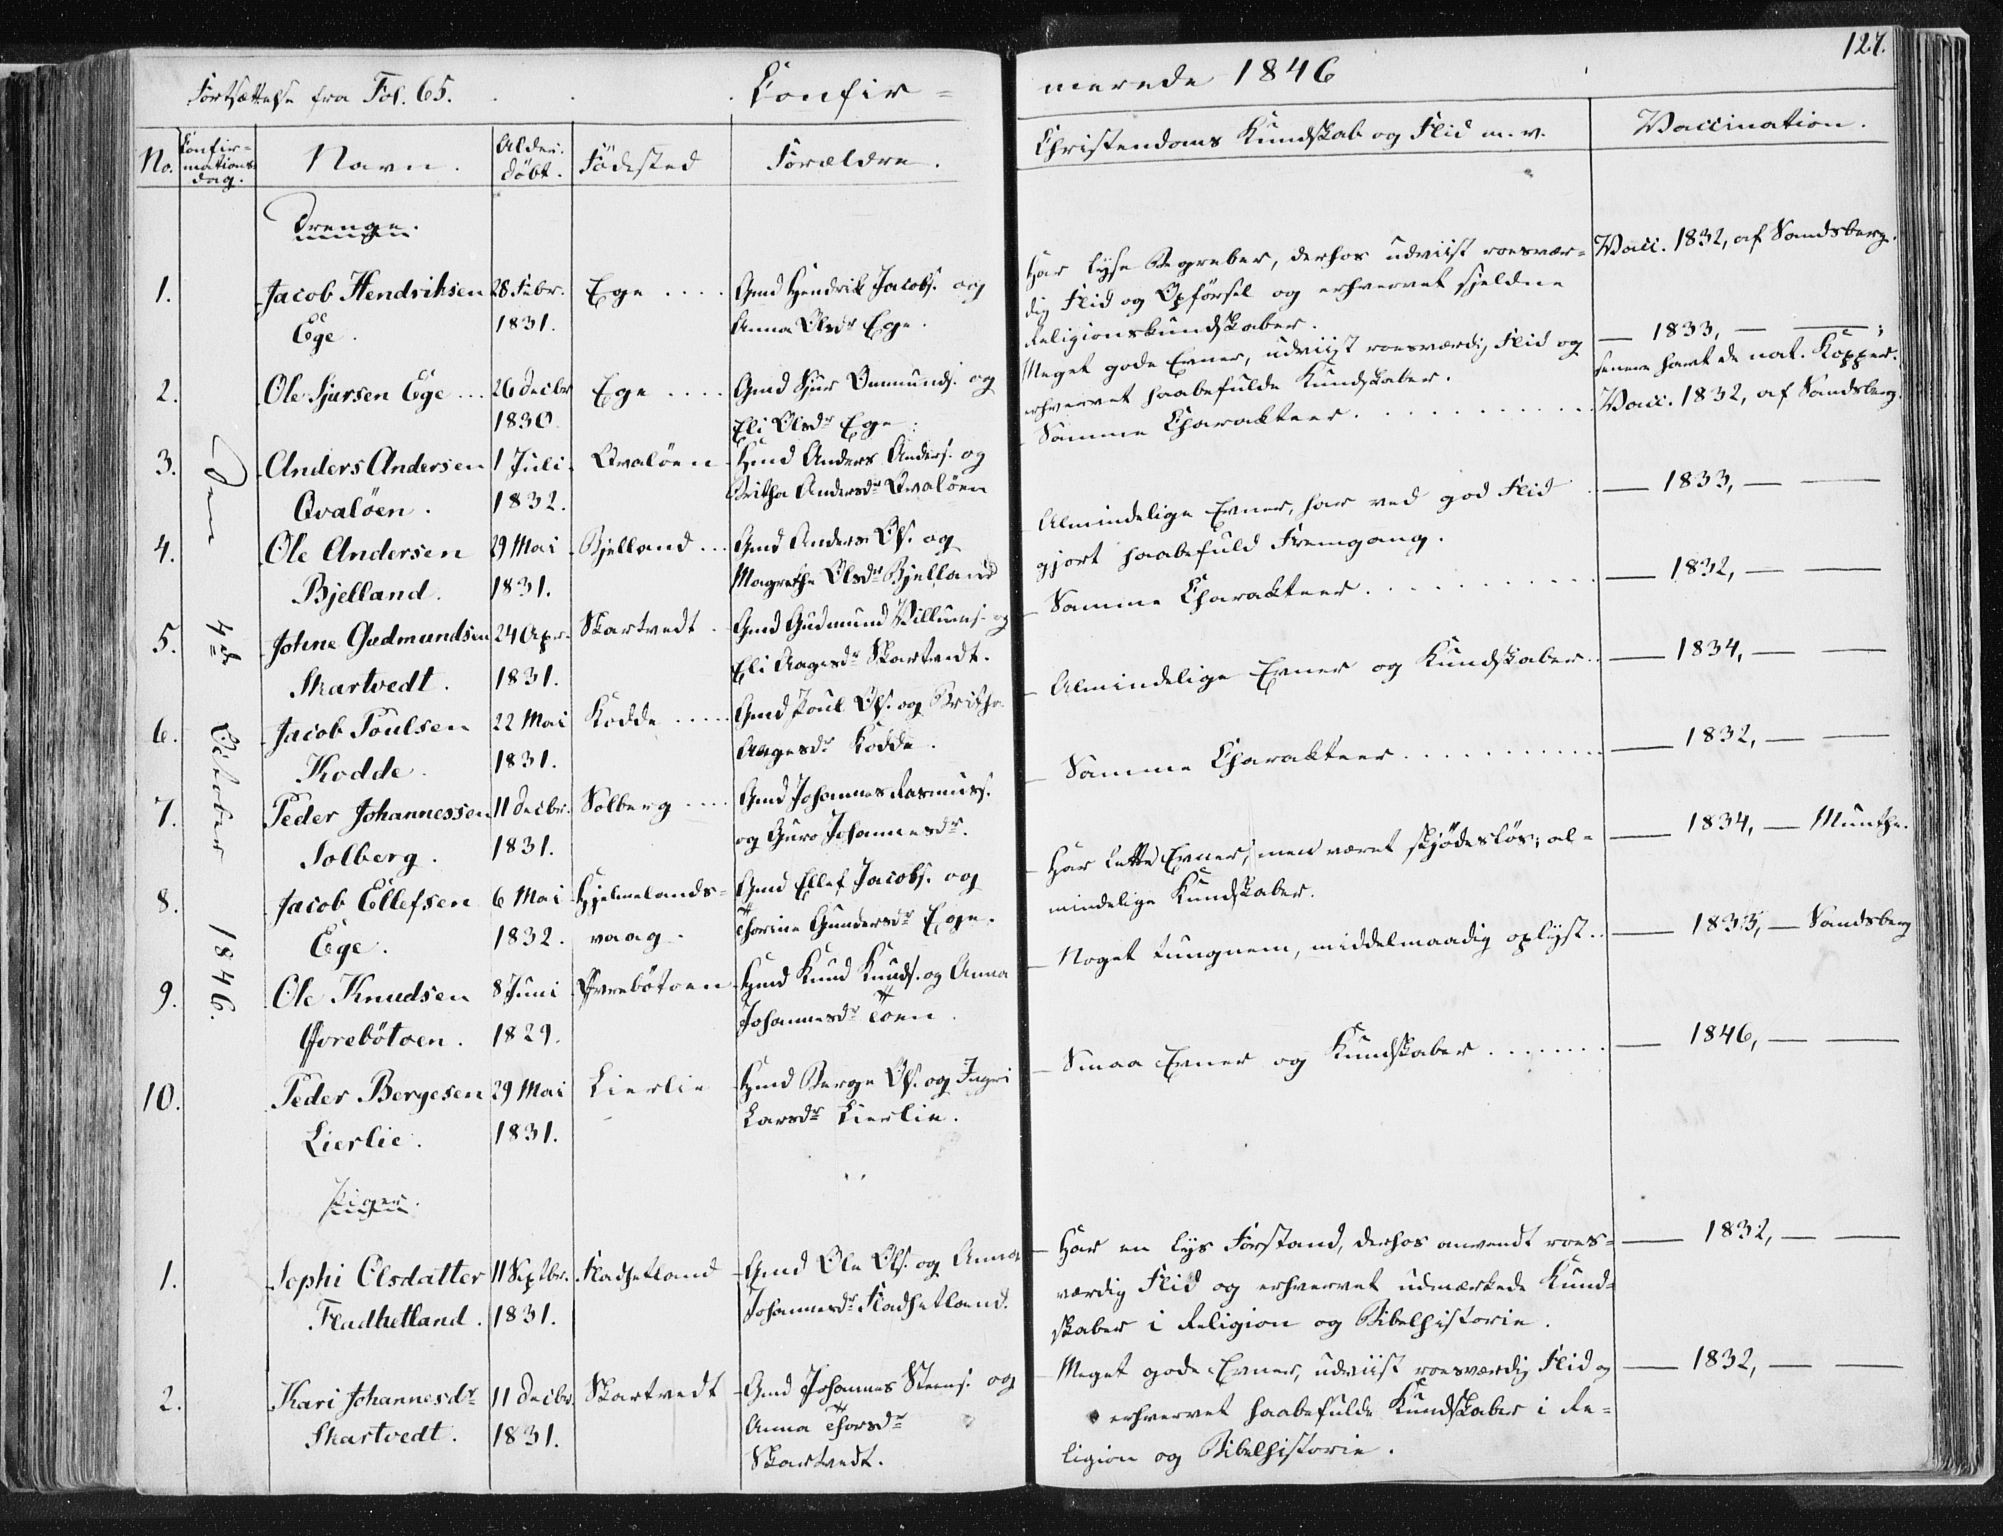 Fortsættelse fra Fol. 65.
Confir=
merede 1846
127.
No.
Confir=
mations
dag.
Navn.
Alder.
döbt.
Födested
Forældre.
Christendoms Kundskab og Flid m.v.
Vaccination.
Den 4de October 1846.
Drenge.
1.
Jacob Hendriksen
Ege.
28 Febr.
1831.
Ege ....
Gmd Hendrik Jacobs. og
Anna Olsdr Ege.
Har lyse Begreber, derhos udviist roesvær=
dig Flid og Opförsel og erhvervet sjeldne
Religionskundskaber.
Vacc. 1832, af Sandsberg.
2.
Ole Sjursen Ege ...
26 Decbr
1830.
Ege ....
Gmd Sjur Onmunds. og
Eli Olsdr Ege.
Meget gode Evner, udviist roesværdig Flid og
erhvervet haabefulde Kundskaber.
— 1833, — — ;
senere havt de nat. Kopper.
3.
Anders Andersen
Qvalöen.
1 Juli
1832.
Qvalöen
Hmd Anders Anders. og
Britha Andersdr Qvalöen
Samme Charakteer ..........
Vacc. 1832, af Sandsberg.
4.
Ole Andersen
Bjelland.
29 Mai
1831.
Bjelland ...
Gmd Anders Ols. og
Magrethe Olsdr Bjelland
Almindelige Evner, har ved god Flid
gjort haabefuld Fremgang.
— 1833, — —
5.
Johne Gudmundsen
Skartvedt.
24 Apr.
1831.
Skartvedt.
Gmd Gudmund Villums. og
Eli Aagesdr Skartvedt.
Samme Charakteer ..........
— 1832, — —
6.
Jacob Poulsen
Kodde.
22 Mai
1831.
Kodde .....
Gmd Poul Ols. og Britha
Aagesdr Kodde.
Almindelige Evner og Kundskaber..
— 1834, — —
7.
Peder Johannessen
Solberg.
11 Decbr.
1831.
Solberg ....
Gmd Johannes Rasmuss.
og Guro Johannesdr.
Samme Charakteer ..........
— 1832, — —
8.
Jacob Ellefsen
Ege.
6 Mai
1832.
Hjelmelands=
vaag.
Gmd Ellef Jacobs. og
Thorine Gundersdr Ege.
Har lette Evner, men været skjödeslös; al=
mindelige Kundskaber.
— 1834, — Munthe.
9.
Ole Knudsen
Qvrebötoen.
8 Juni
1829.
Qvrebötoen
Hmd Knud Knuds. og Anna
Johannesdr Toen.
Noget tungnem, middelmaadig oplyst..
— 1833, — Sandsberg
10.
Peder Bergesen
Lierlie.
29 Mai
1831.
Lierlie
Hmd Berge Ols. og Ingri
Larsdr Lierlie.
Smaa Evner og Kundskaber .......
— 1846, — —
Piger.
1.
Sophi Olsdatter
Fladhetland.
11 Septbr.
1831.
Fladhetland
Gmd Ole Ols. og Anna
Johannesdr Fladhetland.
Har en lys Forstand, derhos anvendt roes=
værdig Flid og erhvervet udmærkede Kund=
skaber i Religion og Bibelhistorie.
— 1832, — —
2.
Kari Johannesdr
Skartvedt.
11 Decbr.
1831.
Skartvedt
Gmd Johannes Steens. og
Anna Thorsdr
Skartvedt.
Meget gode Evner, udviist roesværdig Flid og
erhvervet haabefulde Kundskaber i Re=
ligion og Bibelhistorie.
— 1832, — —